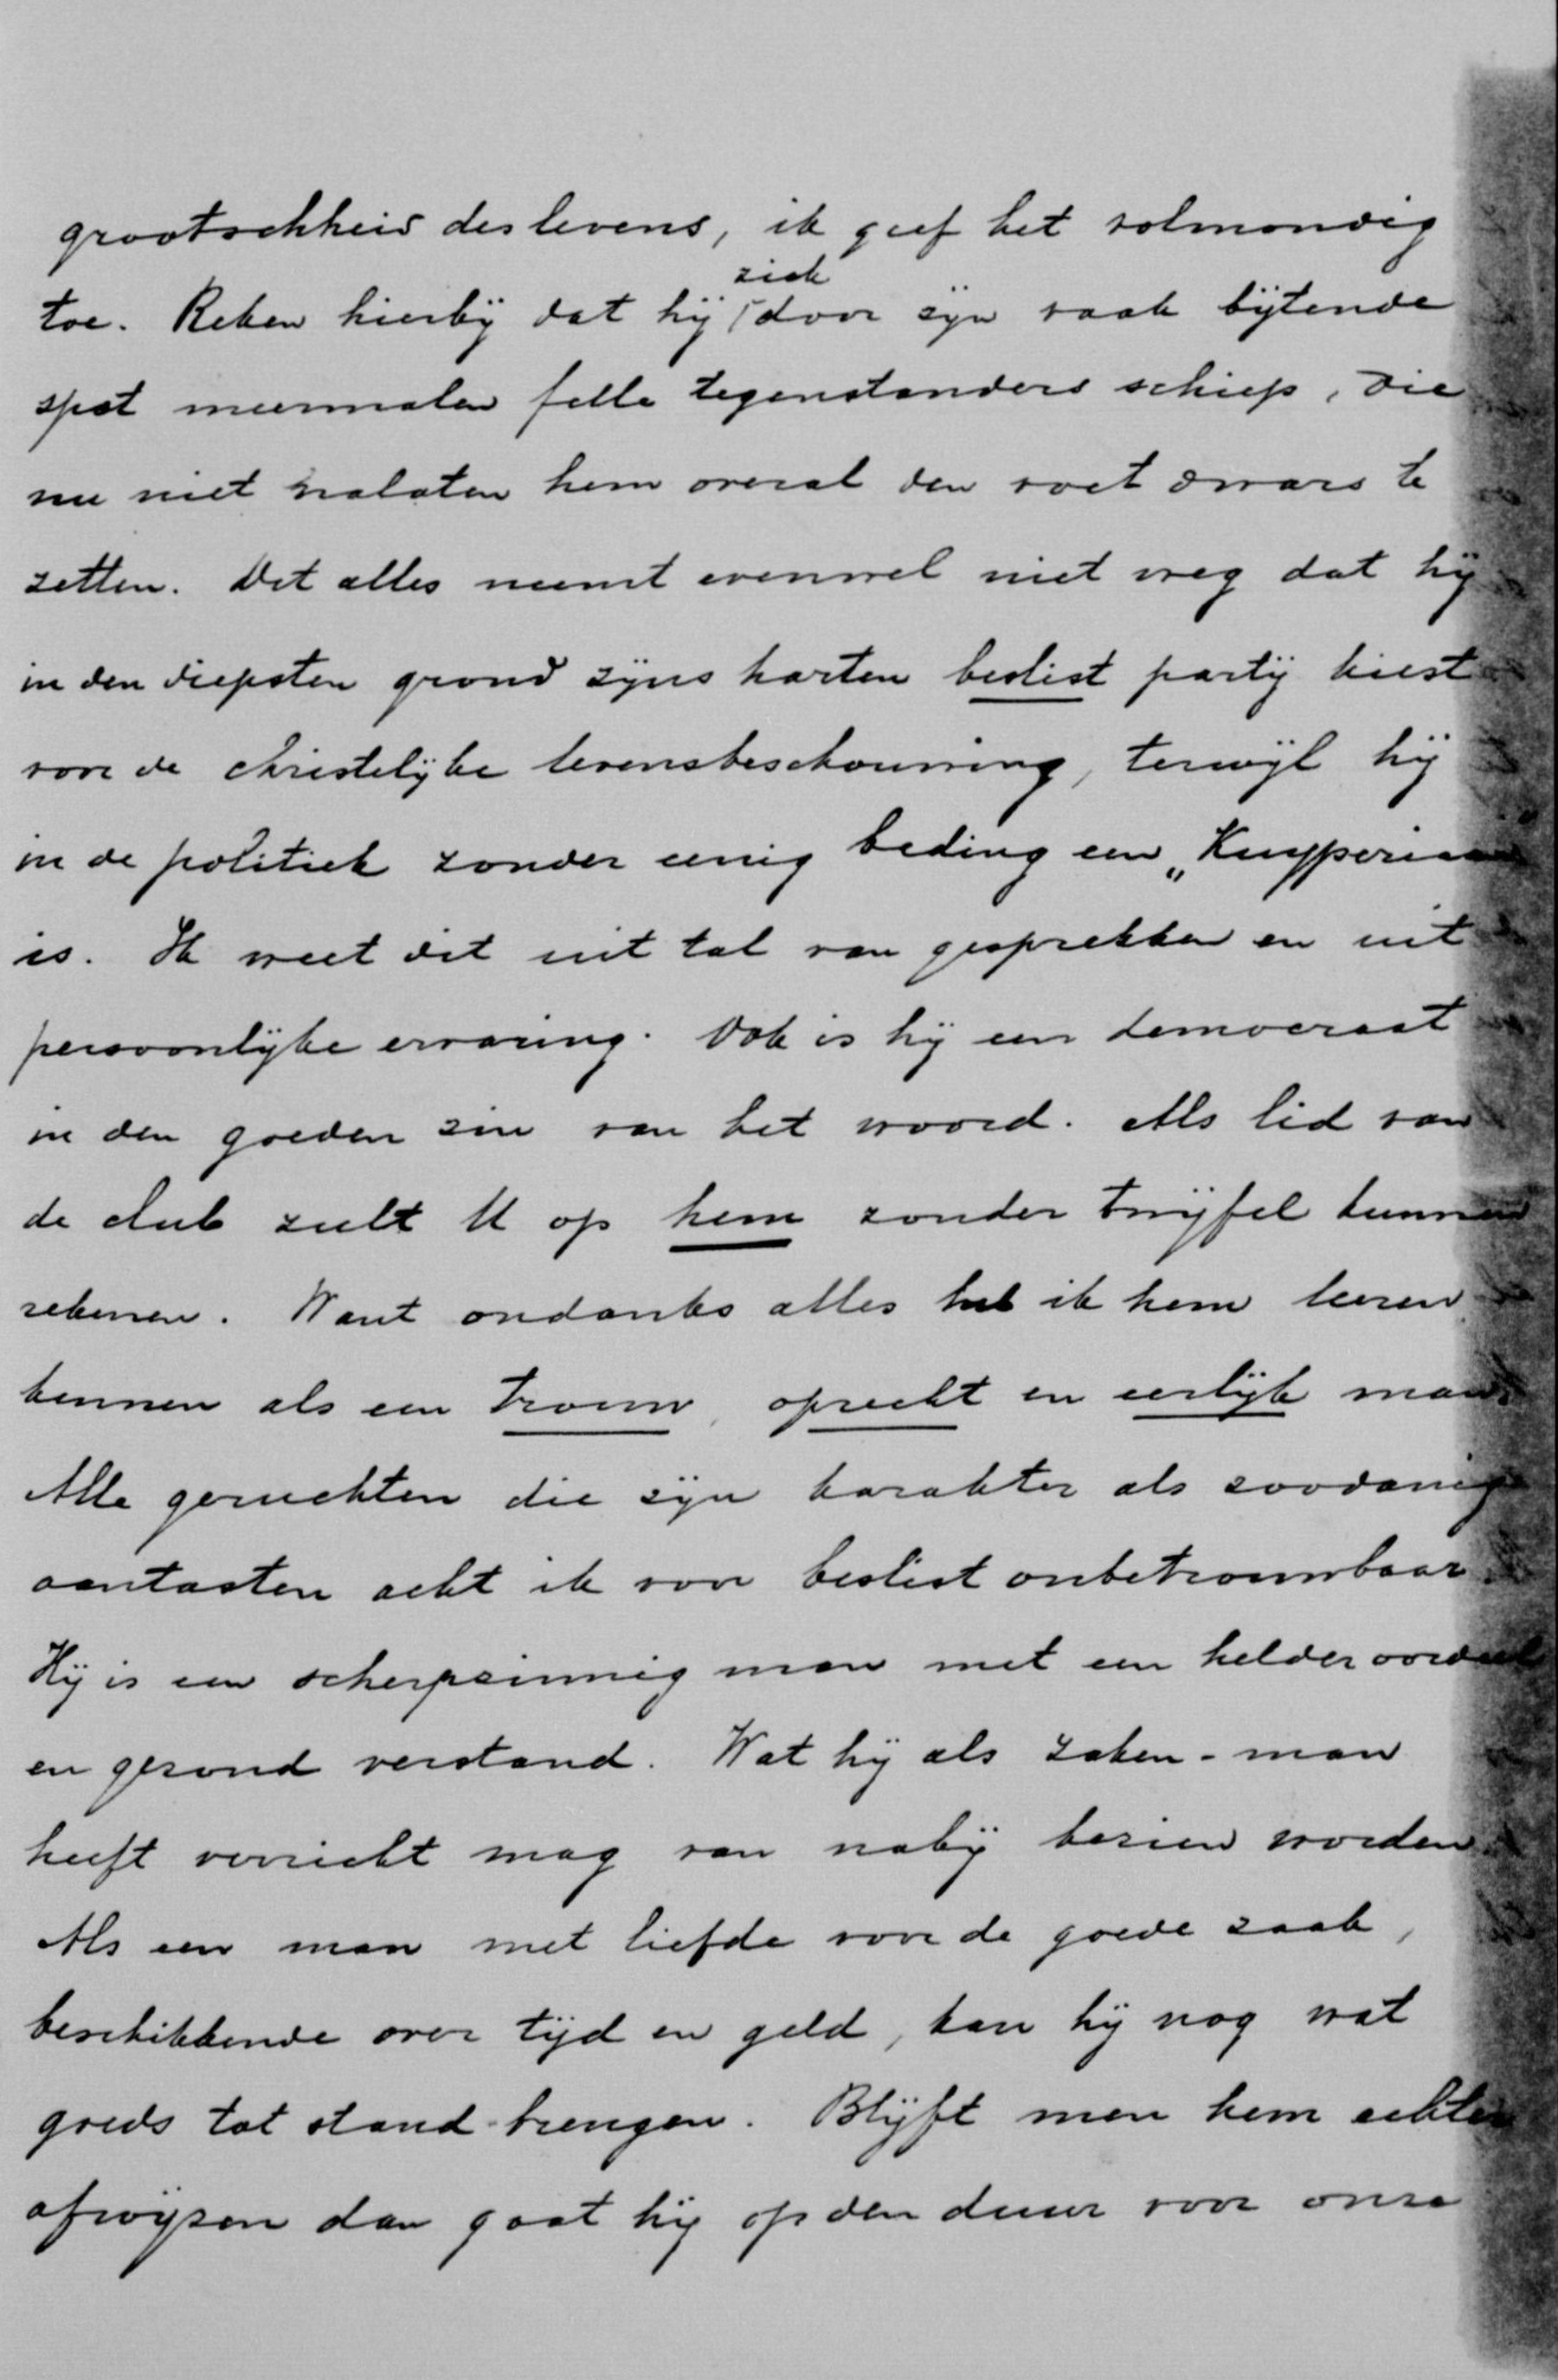 grootschheid des levens, ik geef het volmondig
toe. Reken hierbij dat hij zich door zijn vaak bijtende
spot meermalen felle tegenstanders schiep, die
nu niet nalaten hem overal den voet dwars te
zetten. Dit alles neemt evenwel niet weg dat hij
in den diepsten grond zijns harten beslist partij kiest
voor de christelijke levensbeschouwing, terwijl hij
in de politiek zonder eenig beding een „Kuyperiaan
is. Ik weet dit uit tal van gesprekken en uit
persoonlijke ervaring. Ook is hij een democraat
in den goeden zin van het woord. Als lid van
de club zult U op hem zonder twijfel kunnen
rekenen. Want ondanks alles heb ik hem leeren
kennen als een trouw, oprecht en eerlijk man.
Alle geruchten die zijn karakter als zoodanig
aantasten acht ik voor beslist onbetrouwbaar.
Hij is een scherpzinnig man met een helder oordeel
en gezond verstand. Wat hij als zaken-man
heeft verricht mag van nabij bezien worden.
Als een man met liefde voor de goede zaak,
beschikkende over tijd en geld, kan hij nog wat
goeds tot stand brengen. Blijft men hem echter
afwijzen dan gaat hij op den duur voor onze